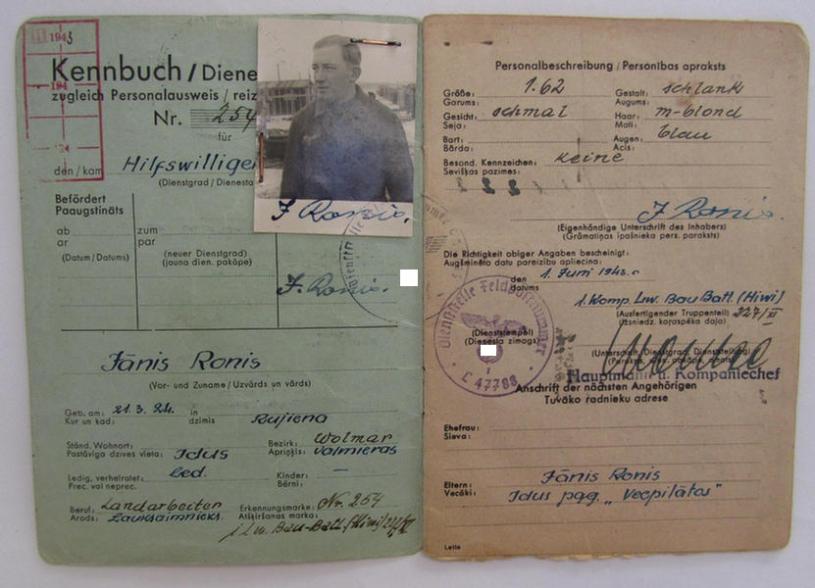 1943
194
Kennbuch / Diens
zugleich Personalausweis / reiz
Nr. 254
für
den / kam Hilfswilligen
(Dienstgrad / Dienesta
Befördert
Paaugstināts
ab
ar
zum
par
(Datum / Datums)
(neuer Dienstgrad)
(jauna dien. pakāpe)
J Ronis.
J. Ronis.
Jānis Ronis
(Vor- und Zuname / Uzvārds un vārds)
Geb. am: 21.3.24. in Rujiena
Kur un kad: dzimis
Ständ. Wohnort: Idus
Pastāvīga dzīves vieta:
Bezirk: Wolmar
Apriņķis: Valmieras
Ledig, verheiratet: led.
Prec. vai neprec.
Kinder: —
Bērni:
Beruf: Landarbeiter
Arods: Lauksaimnieks.
Erkennungsmarke: Nr. 254
Atšķiršanas marka:
Personalbeschreibung / Personības apraksts
Größe: 1.62
Garums:
Gestalt: schlank
Augums:
Gesicht: schmal
Seja:
Haar: m-blond
Mati:
Bart:
Bārda:
Augen: blau
Acis:
Besond. Kennzeichen: keine
Sevišķas pazīmes:
J. Ronis.
(Eigenhändige Unterschrift des Inhabers)
(Grāmatiņas īpašnieka pers. paraksts)
Die Richtigkeit obiger Angaben bescheinigt:
Augšminēto datu pareizību apliecina:
den 1. Juni 1943.
datums
1. Komp. Lw. Bau Batl. (Hiwi)
(Ausfertigender Truppenteil) 227/XI
(Izsniedz. karaspēka daļa)
Dienststelle Feldpostnummer
L 47788
(Dienststempel)
(Dienesta zīmogs)
Hauptmann u. Kompaniechef
Anschrift der nächsten Angehörigen
Tuvāko radinieku adrese
Ehefrau:
Sieva:
Eltern: Jānis Ronis
Vecāki: Idus pag. „Vecpilātas"
Lette